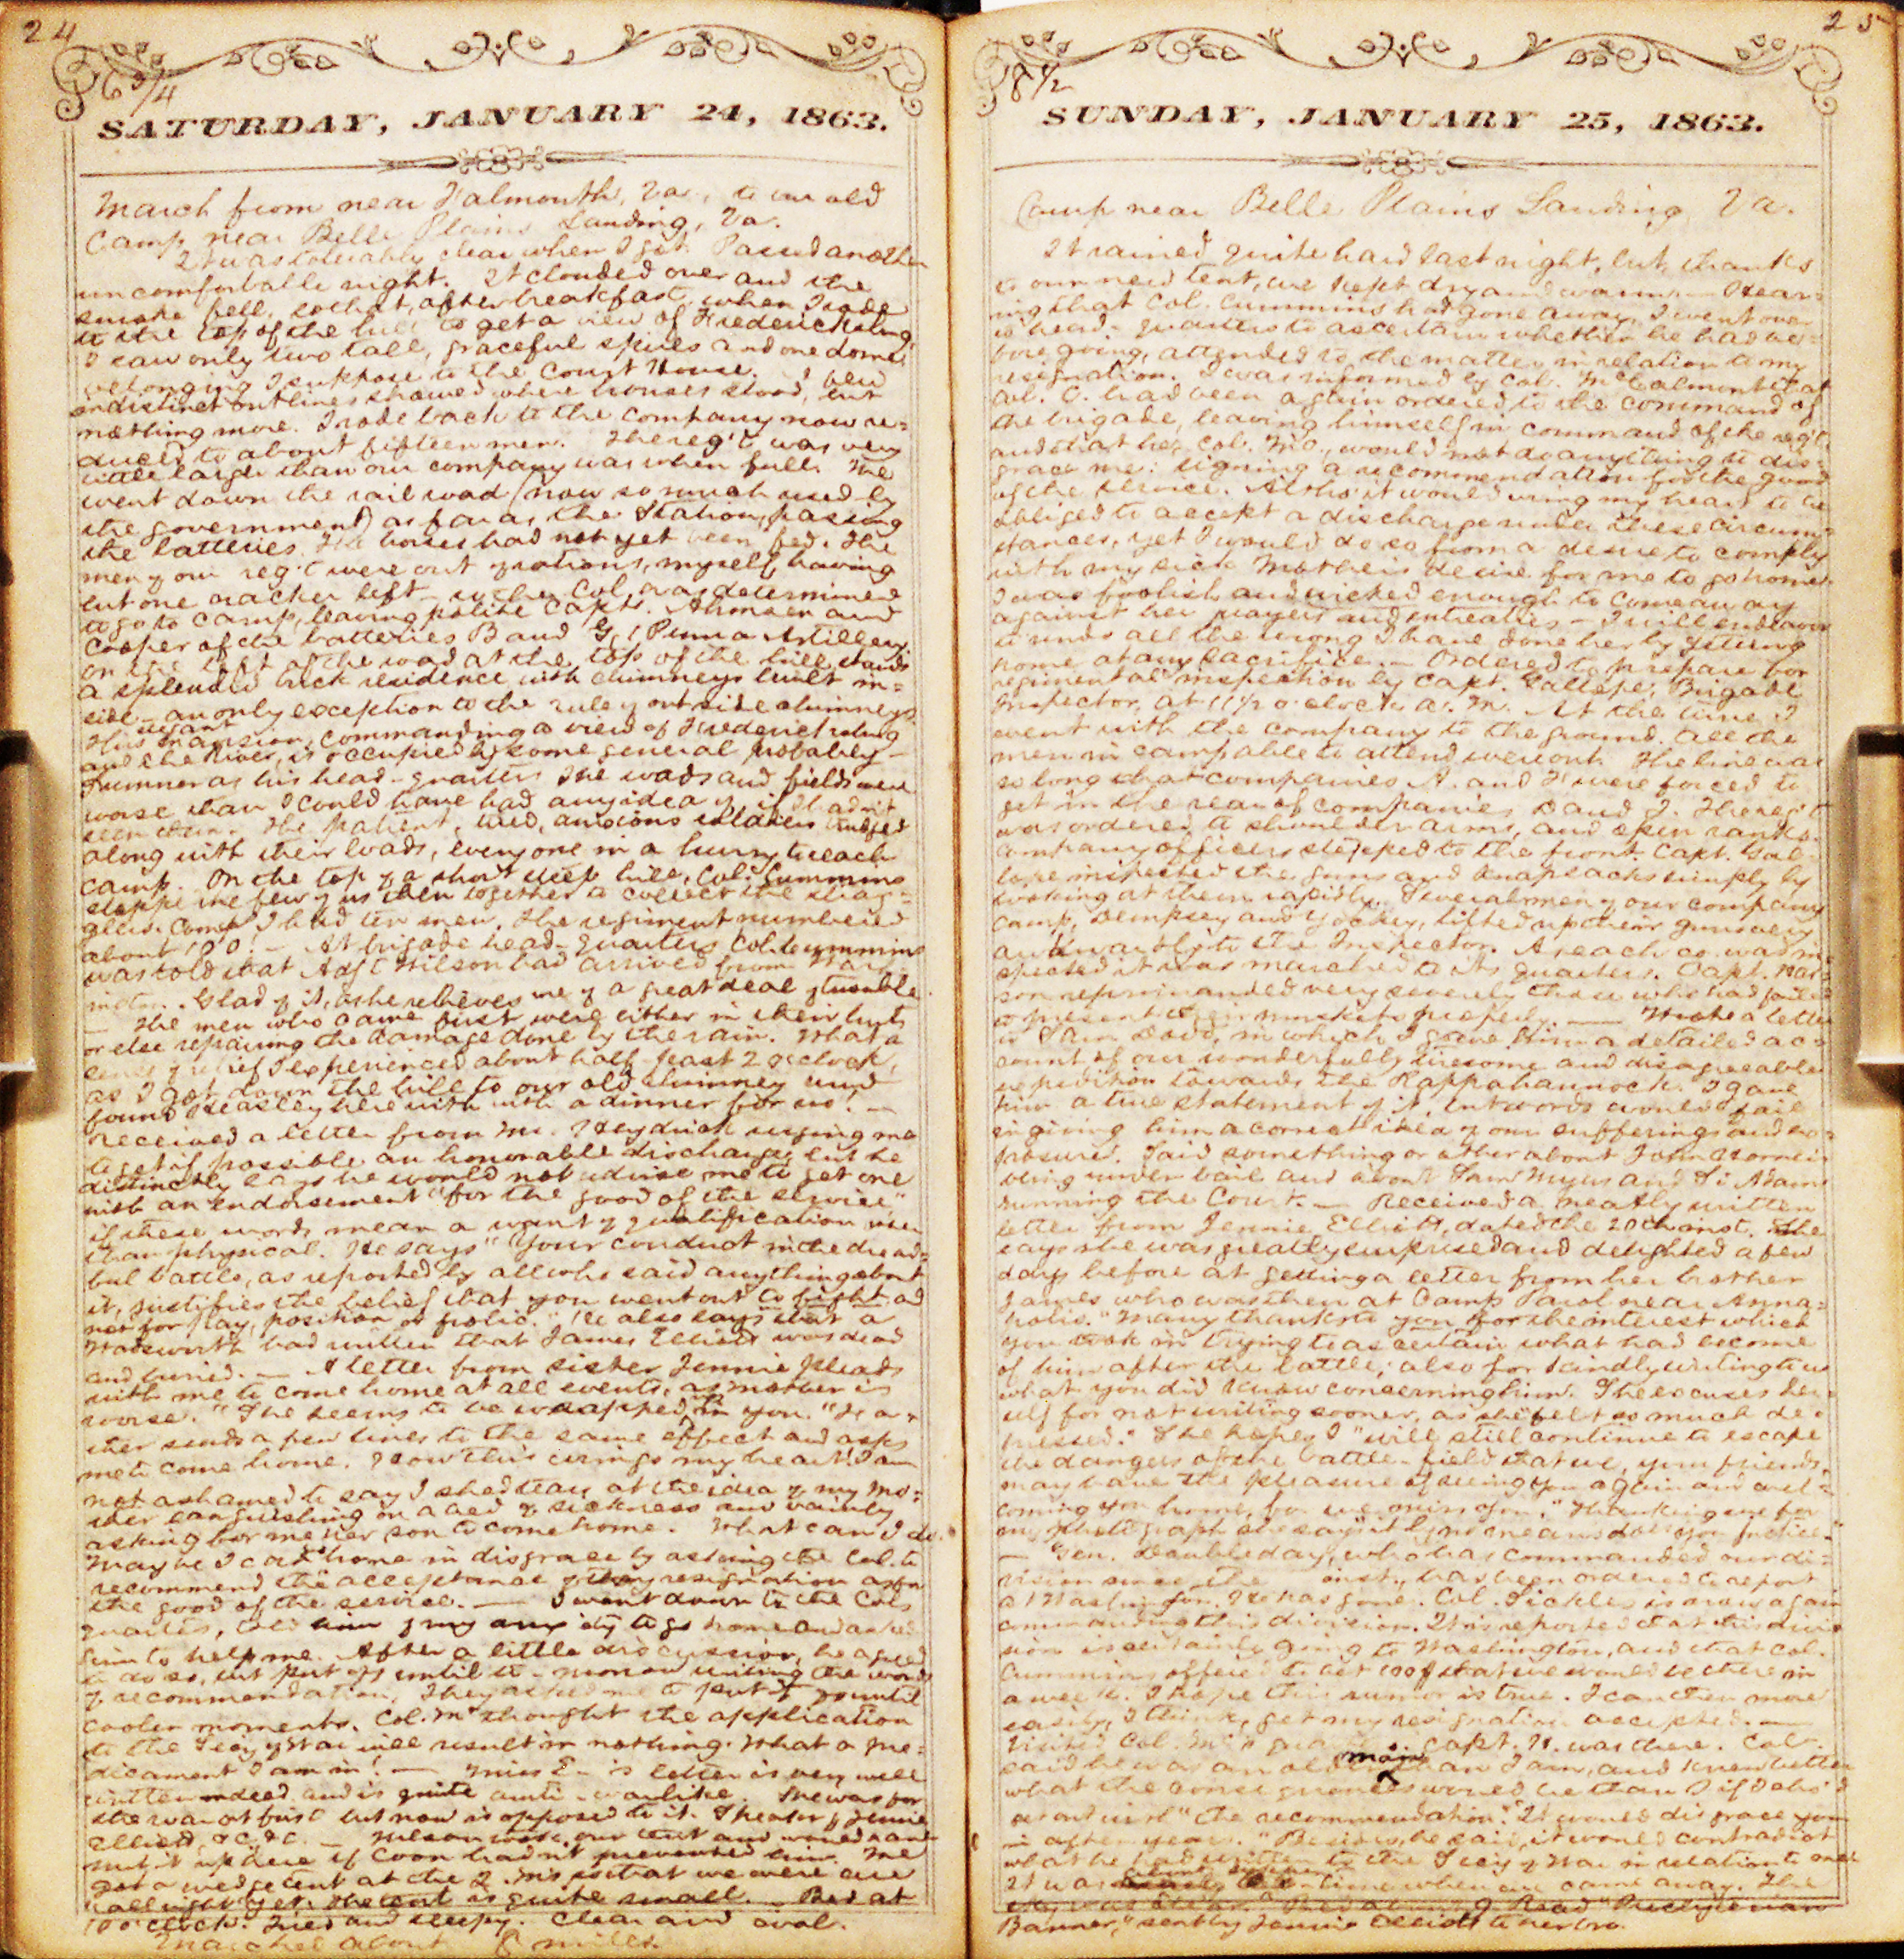 24
6 3/4
SATURDAY, JANUARY 24, 1863.
March from near Falmouth, Va., to our old
Camp near Belle Plains Landing, Va.
It was tolerably clear when I got. Passed another
uncomfortable night. It clouded over and the
smoke fell, so that, after breakfast, when I rode
to the top of the hill to get a view of Fredericksburg,
I saw only two tall, graceful spires and one dome
belonging I suppose to the Court House. A few
indistinct outlines showed where houses stood, but
nothing more. I rode back to the company now re=
duced to about fifteen men. The reg't was very
little larger than our company was when full. We
went down the rail road (now so much used by
the government) as far as the Station, passing
the batteries. The horses had not yet been fed. The
men of our reg't were out of rations, myself having
but one cracker left - so the Col. was determined
to go to camp, leaving polite Capts. and
Cooper of the batteries B and G, 1 Penn'a Artillery.
On the left of the road at the top of the hill stands
a splendid brick residence with chimneys built in=
side - an only exception to the rule of outside chimneys.
This mansion, commanding a view of Fredericksburg
and the River, is occupied by some general probably -
Sumner as his head-quarters. The roads and fields were
worse than I could have had any idea of, if I hadn't
seen them. The patient, tired, anxious soldiers trudged
along with their loads, everyone in a hurry to reach
camp. On the top of a short steep hill, Col. Cummins
stopped the few of us then together to collect the strag-
glers. Comp. I had ten men, the regiment numbered
about 100! - At brigade head-quarters Col. Cummins
was told that Adj't Wilson had arrived from Wash
ington. Glad of it, as he relieves me of a great deal of trouble
- The men who came first were either in their huts
or else repairing the damage done by the rain. What a
sense of relief I experienced about half past 2 o'clock,
as I got down the hill to our old chimney and
found Beasley here with a dinner for us! -
Received a letter from Mr. Heydrick urging me
to get if possible an honorable discharge, but he
distinctly says he would not advise me to get one
with an endorsement "for the good of the service"
if these words mean a want of qualification other
than physical. He says "Your conduct in the dread=
ful battle, as reported by all who said anything about
it, justifies the belief that you went out to fight and
not for play, position or frolic." He also says that a
Wadsworth had written that James Elliott was dead
and buried. - A letter from sister Jennie pleads
with me to come home at all events, as mother is
worse. "She seems to be wrapped in you." Fa=
ther sends a few lines to the same effect and asks
me to come home. How this wrings my heart! I am
not ashamed to say I shed tears at the idea of my mo=
ther languishing on a bed of sickness and vainly
asking for me her son to come home. What can I do.
May be I can home in disgrace by asking the Col. to
recommend the acceptance of my resignation as for
the good of the service. - I went down to the Col's
quarters, told him of my anxiety to go home and asked
him to help me. After a little discussion, he agreed
to do so, but put off until to-morrow writing the words
of recommendation. They asked me to put it off until
cooler moments. Col. Mc thought the application
to the Sec'y of War will result in nothing. What a pre=
dicament I am in! - Miss E-'s letter is very well
written indeed and is quite anti-warlike. She was for
the war at first but now is opposed to it. Speaks of Jennie
Elliott, &c. &c. - Wilson took our tent and would
put it up here if Coon hadn't prevented him. We
got a wedge tent at the Q. M's so that we were all
all right yet. The tent is quite small. - Bed at
10 o'clock. Tired and sleepy. Clear and cool.
Marched about 8 miles.
25
8 1/2
SUNDAY, JANUARY 25, 1863.
Camp near Belle Plains Landing, Va.
It rained quite hard last night, but, thanks
to our new tent, we kept dry and warm. - Hear=
ing that Col. Cummins had gone away, I went over
to head-quarters to ascertain whether he had be=
fore going, attended to the matter in relation to my
resignation. I was informed by Col. McCalmont that
Col. C. had been again ordered to the command of
the brigade, leaving himself in command of the reg't
and that he, Col. Mc., would not do anything to dis=
grace me: signing a recommendation for the good
of the service. Altho' it would wring my heart to be
obliged to accept a discharge under these circum=
stances, yet I would do so from a desire to comply
with my sick Mother's desire for me to go home.
I was foolish and wicked enough to come away
against her prayers and entreaties - I will endeavor
to undo all the wrong I have done her by getting
home at any sacrifice. - Ordered to prepare for
regimental inspection by Capt. Gallope, Brigade
Inspector, at 11 1/2 o'clock a. m. At the time I
went with the company to the ground. All the
men in camp able to attend were out. The line was
so long that companies A. and F were forced to
get in the rear of companies D and I. The reg't
was ordered to shoulder arms, and open ranks.
Company officers stepped to the front. Capt. Gal-
lope inspected the guns and knapsacks simply by
looking at them rapidly. Several men of our company
Camp, Dempsey and Yockey, lifted up their guns very
awkwardly to the Inspector. As each co. was in=
spected it was marched to its quarters. Capt. Har=
son reprimanded very severely those who had failed
to present their muskets properly. - Wrote a letter
to Sam Dodd, in which I gave him a detailed ac=
count of our wonderfully tiresome and disagreeable
expedition towards the Rappahannock. I gave
him a true statement of it, but words would fail
in giving him a correct idea of our sufferings and ex=
posure. Said something or other about John
being under bail and about Sam Myers and Si Adams
running the Court. - Received a neatly written
letter from Jennie Elliott, dated the 20th inst. She
says she was greatly surprised and delighted a few
days before at getting a letter from her brother
James who was then at Camp Parol near Anna=
polis. "Many thanks to you for the interest which
you took in trying to ascertain what had become
of him after the battle; also for kindly writing to us
what you did know concerning him. She excuses her=
self for not writing sooner, as she "felt so much de=
pressed." She hopes I "will still continue to escape
the dangers of the battle-field that we, your friends,
may have the pleasure of seeing you again and wel=
coming you home, for we miss you." Thanking me for
my photograph she says "it by no means does you justice."
- Gen. Doubleday, who has commanded our di=
vision since the inst., has been ordered to report
at Washington. He has gone. Col. Sickles is now again
commanding this division. It is reported that this divi=
sion is certainly going to Washington, and that Col.
Cummins offered to bet 100$ that we would be there in
a week. I hope this rumor is true. I can then more
easily, I think, get my resignation accepted. -
Visited Col. Mc's quarters. Capt. H. was there. Col.
said he was an older man than I am, and knew better
what the consequences would be than I if I also'd
set out with "the recommendation." It would disgrace you
in after years. "Besides, he said, it would contradict
what he had written to the Sec'y of War in relation to me.
It was time when we came away. The
sky was clear. Bed at 9. Read "Presbyterian
Banner," sent by Jennie Elliott to her bro.